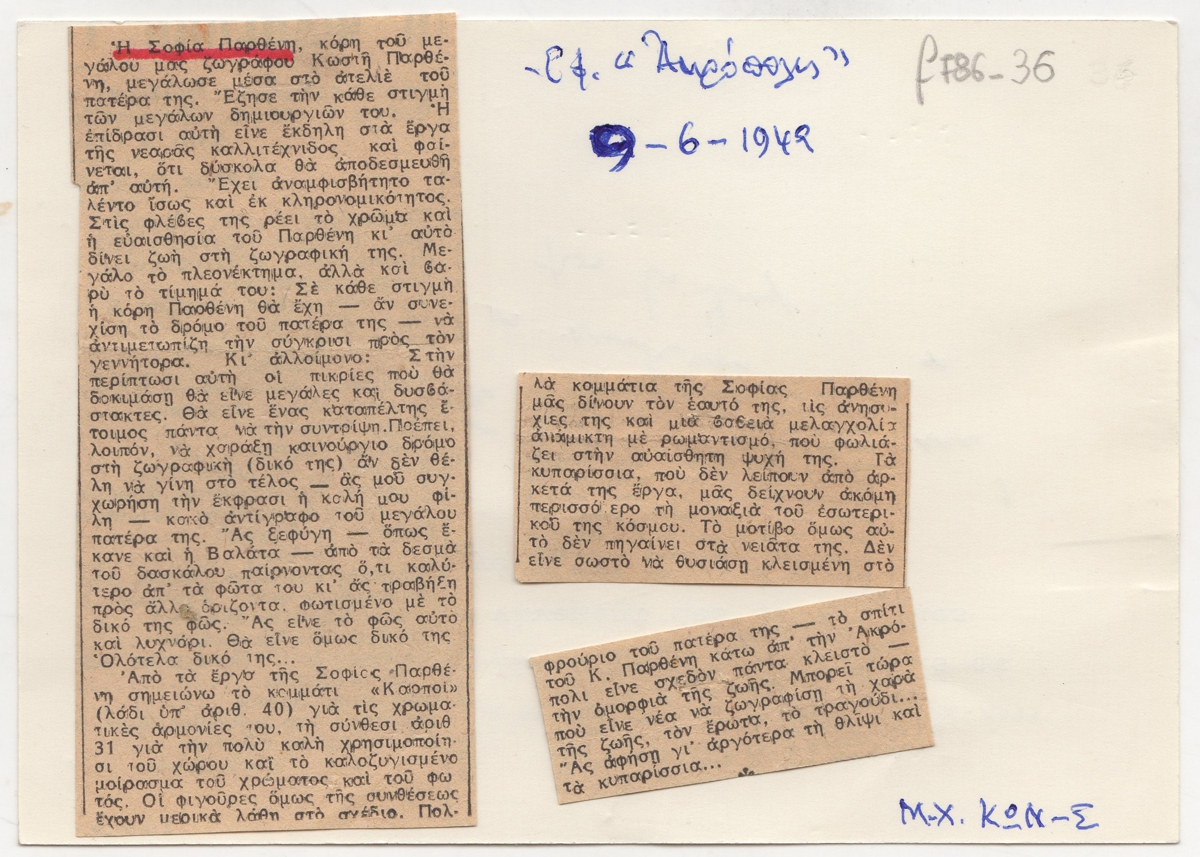 Ἡ Σοφία Παρθένη, κόρη τοῦ με-
γάλου μας ζωγράφου Κωστῆ Παρθέ-
νη, μεγάλωσε μέσα στὸ ἀτελιὲ τοῦ
πατέρα της. Ἔζησε τὴν κάθε στιγμὴ
τῶν μεγάλων δημιουργιῶν του. Ἡ
ἐπίδρασι αὐτὴ εἶνε ἔκδηλη στὰ ἔργα
τῆς νεαρᾶς καλλιτέχνιδος καὶ φαί-
νεται, ὅτι δύσκολα θὰ ἀποδεσμευθῆ
ἀπ' αὐτή. Ἔχει ἀναμφισβήτητο τα-
λέντο ἴσως καὶ ἐκ κληρονομικότητος.
Στὶς φλέβες της ρέει τὸ χρῶμα καὶ
ἡ εὐαισθησία τοῦ Παρθένη κι' αὐτὸ
δίνει ζωὴ στὴ ζωγραφική της. Με-
γάλο τὸ πλεονέκτημα, ἀλλὰ καὶ βα-
ρὺ τὸ τίμημά του: Σὲ κάθε στιγμὴ
ἡ κόρη Παρθένη θὰ ἔχη — ἄν συνε-
χίση τὸ δρόμο τοῦ πατέρα της — νὰ
ἀντιμετωπίζη τὴν σύγκρισι πρὸς τὸν
γεννήτορα. Κι' ἀλλοίμονο: Στὴν
περίπτωσι αὐτὴ οἱ πικρίες ποὺ θὰ
δοκιμάση θὰ εἶνε μεγάλες καὶ δυσβά-
στακτες. Θὰ εἶνε ἕνας καταπέλτης ἕ-
τοιμος πάντα νὰ τὴν συντρίψη. Πρέπει,
λοιπόν, νὰ χαράξη καινούργιο δρόμο
στὴ ζωγραφικὴ (δικό της) ἄν δὲν θέ-
λη νὰ γίνη στὸ τέλος — ἄς μοῦ συγ-
χωρήση τὴν ἔκφρασι ἡ καλή μου φί-
λη — κακὸ ἀντίγραφο τοῦ μεγάλου
πατέρα της. Ἄς ξεφύγη — ὅπως ἔ-
κανε καὶ ἡ Βαλάτα — ἀπὸ τὰ δεσμὰ
τοῦ δασκάλου παίρνοντας ὅ,τι καλύ-
τερο ἀπ' τὰ φῶτα του κι' ἄς τραβήξη
πρὸς ἄλλο ὁρίζοντα, φωτισμένο μὲ τὸ
δικό της φῶς. Ἄς εἶνε τὸ φῶς αὐτὸ
καὶ λυχνάρι. Θὰ εἶνε ὅμως δικό της
Ὁλότελα δικό της...
Ἀπὸ τὰ ἔργα τῆς Σοφίας Παρθέ-
νη σημειώνω τὸ κομμάτι «Καρποὶ»
(λάδι ὑπ' ἀριθ. 40) γιὰ τὶς χρωμα-
τικὲς ἁρμονίες του, τὴ σύνθεσι ἀριθ
31 γιὰ τὴν πολὺ καλὴ χρησιμοποίη-
σι τοῦ χώρου καὶ τὸ καλοζυγισμένο
μοίρασμα τοῦ χρώματος καὶ τοῦ φω
τός. Οἱ φιγοῦρες ὅμως τῆς συνθέσεως
ἔχουν μερικὰ λάθη στὸ σχέδιο. Πολ-
- Εφ. "Ἀκρόπολις"
9-6-1942
786-36
λὰ κομμάτια τῆς Σοφίας Παρθένη
μᾶς δίνουν τὸν ἑαυτό της, τὶς ἀνησυ-
χίες της καὶ μιὰ βαθειὰ μελαγχολία
ἀνάμικτη μὲ ρωμαντισμό, ποὺ φωλιά-
ζει στὴν αὐαίσθητη ψυχή της. Τὰ
κυπαρίσσια, ποὺ δὲν λείπουν ἀπὸ ἀρ-
κετά της ἔργα, μᾶς δείχνουν ἀκόμη
περισσότερο τὴ μοναξιὰ τοῦ ἐσωτερι-
κοῦ της κόσμου. Τὸ μοτίβο ὅμως αὐ-
τὸ δὲν πηγαίνει στὰ νειᾶτα της. Δὲν
εἶνε σωστὸ νὰ θυσιάση κλεισμένη στὸ
φρούριο τοῦ πατέρα της — τὸ σπίτι
τοῦ Κ. Παρθένη κάτω ἀπ' τὴν Ἀκρό-
πολι εἶνε σχεδὸν πάντα κλειστὸ —
τὴν ὀμορφιὰ τῆς ζωῆς. Μπορεῖ τώρα
ποὺ εἶνε νέα νὰ ζωγραφίση τὴ χαρὰ
τῆς ζωῆς, τὸν ἔρωτα, τὸ τραγούδι...
Ἄς ἀφήση γι' ἀργότερα τὴ θλίψι καὶ
τὰ κυπαρίσσια...
Μ-Χ. ΚΩΝ-Σ